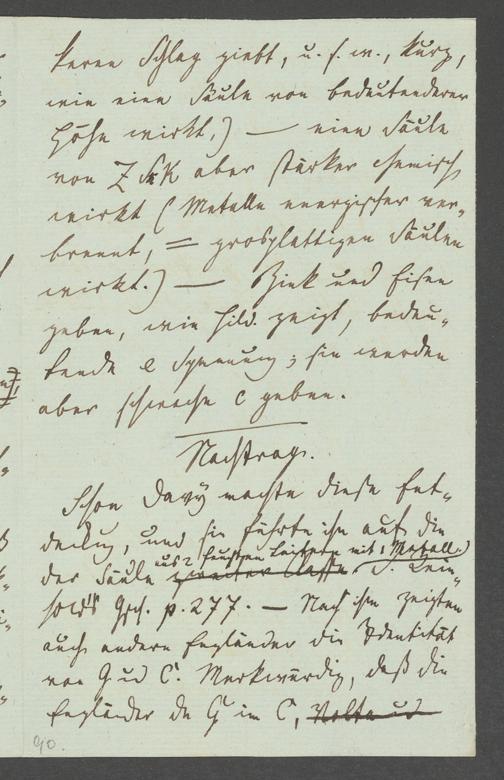 keren Schlag giebt, u. s. w., kurz,
wie eine Säule von bedeutenderer
Höhe wirkt,) — eine Säule
von Z K aber stärker chemisch
wirkt (Metalle energischer ver-
brennt, = grosplattigen Säulen
wirkt.) — Zink und Eisen
geben, wie Hild. zeigt, bedeu-
tende e Spannung; sie werden
aber schwache c geben.
Nachtrag.
Schon Davÿ machte diese Ent-
deckung, und sie führte ihn auf die
aus 2 feuchten Leitern mit 1 Metall.
der Säule zweiter Classe. S. Rein-
hold's Gsch. p. 277. — Nach ihm zeigten
auch andere Engländer die Identität
von G und C. Merkwürdig, daß die
Engländer de G im C, Volta und
90.